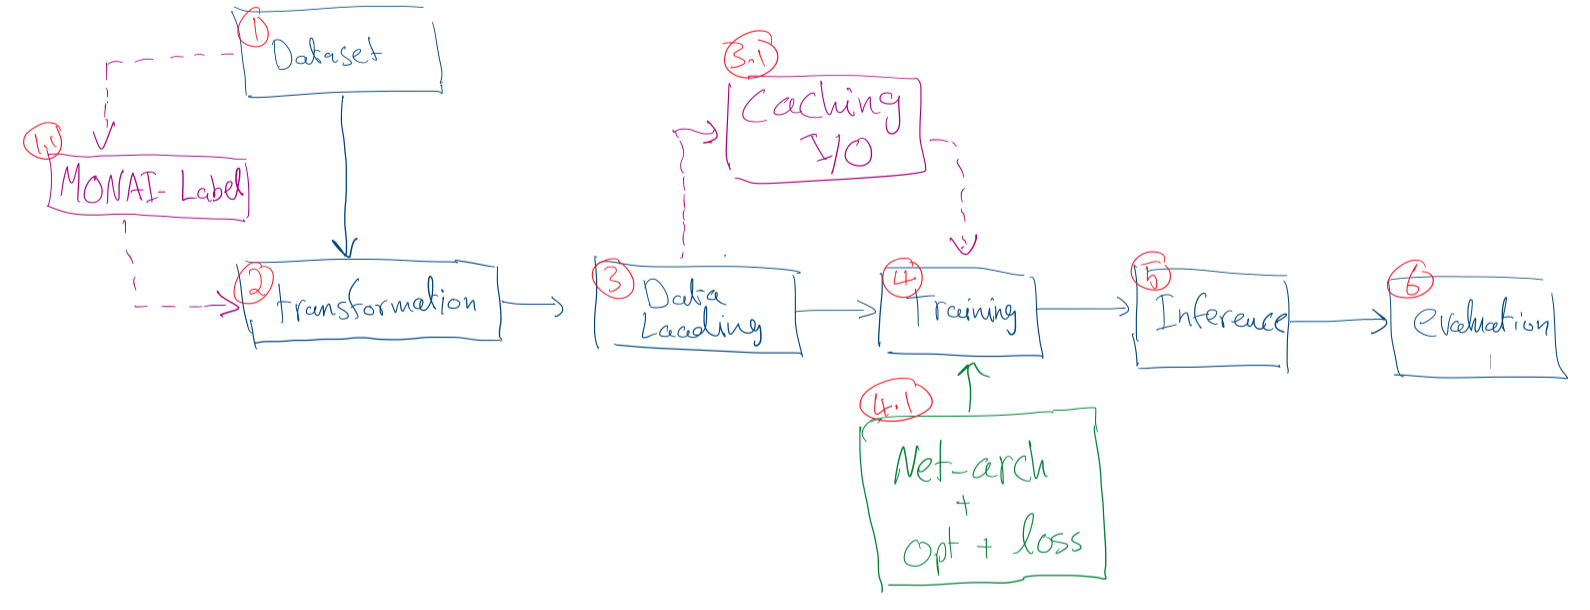 1
Dataset
1.1
MONAI-Label
2
transformation
3
Data
Laoding
3.1
Caching
I/O
4
Training
4.1
Net-arch
+
Opt + loss
5
Inference
6
evaluation